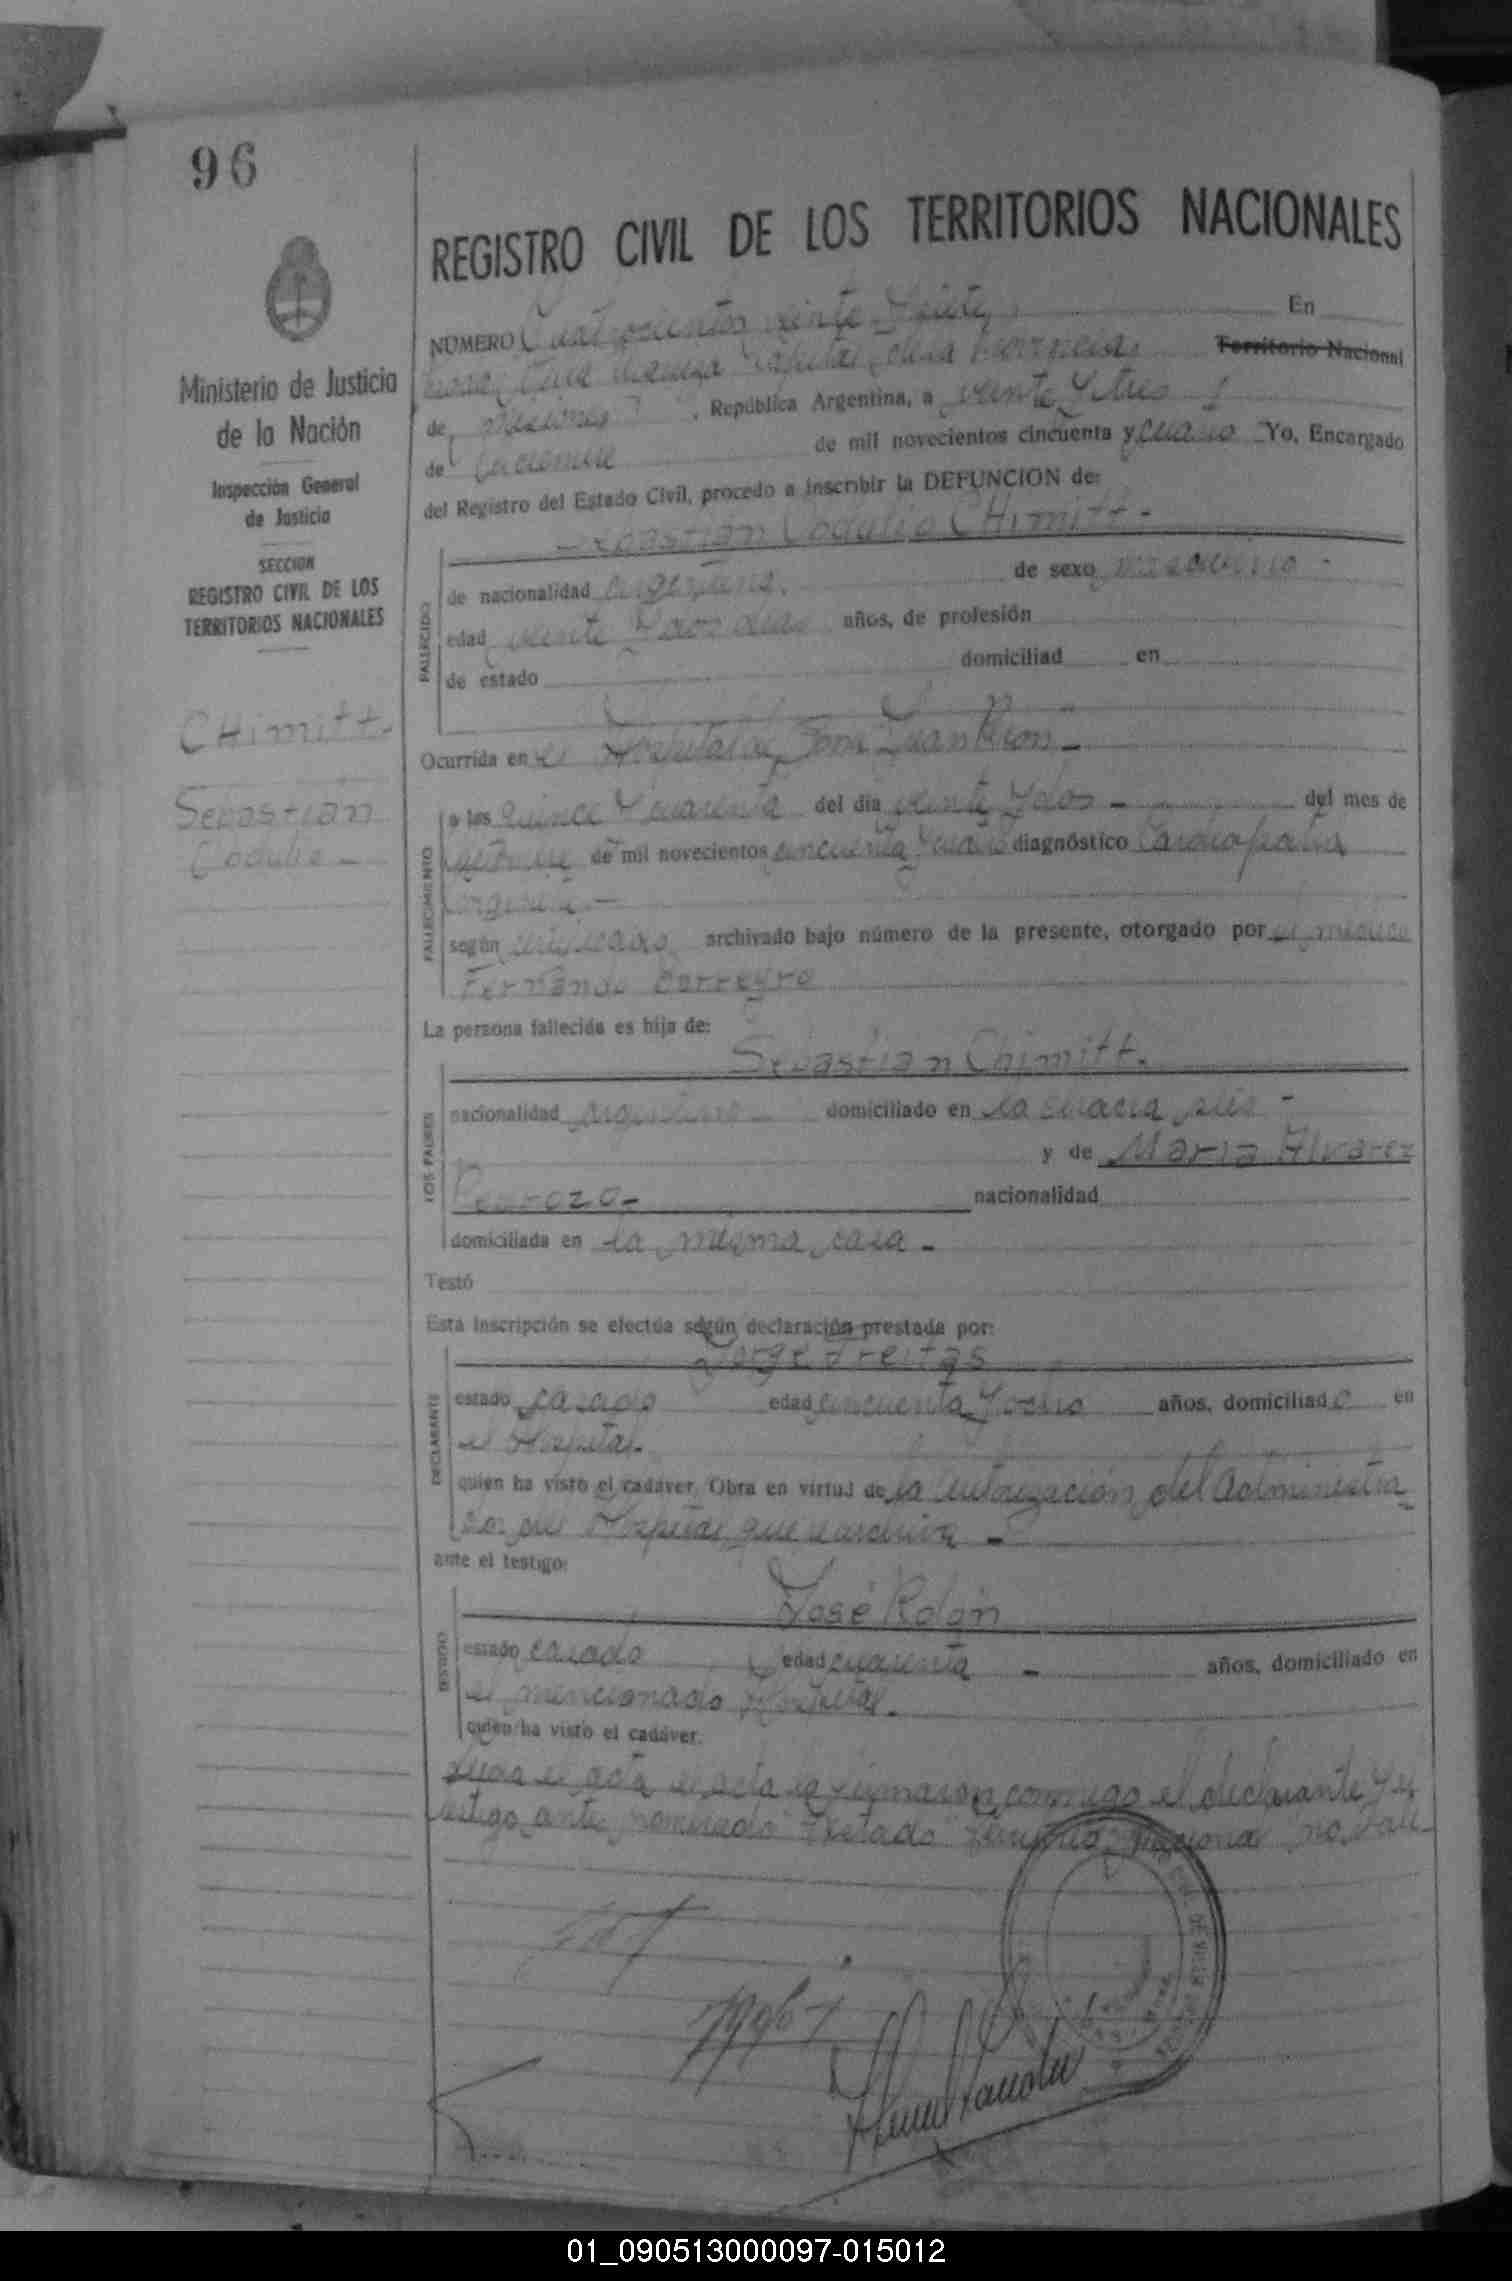 96
REGISTRO CIVIL DE LOS TERRITORIOS NACIONALES
Ministerio de Justicia
de la Nación
Inspección General
de Justicia
SECCION
REGISTRO CIVIL DE LOS
TERRITORIOS NACIONALES
CHimitt.
Sebastián
NÚMERO Cuatrocientos veinte y siete, En
Territorio Nacional
de Misiones, República Argentina, a veinte y tres
de de mil novecientos cincuenta y cuatro Yo, Encargado
del Registro del Estado Civil, procedo a inscribir la DEFUNCION de:
Sebastián CHimitt.-
FALLECIDO
de nacionalidad argentina. de sexo masculino -
edad veinte y dos días años, de profesión
de estado domiciliad en
Ocurrida en el Hospital Juan Perón -
FALLECIMIENTO
a las quince y cuarenta del día veinte y dos - del mes de
de mil novecientos cincuenta y cuatro diagnóstico Cardiopatía
según certificado archivado bajo número de la presente, otorgado por el médico
Fernando Barreyro
La persona fallecida es hija de:
Sebastián Chimitt.
LOS PADRES
nacionalidad argentino domiciliado en
y de María Alvarez
Pedrozo- nacionalidad
domiciliada en la misma casa -
Testó
Esta inscripción se efectúa según declaración prestada por:
Jorge Freitas
DECLARANTE
estado casado edad cincuenta y ocho años, domiciliado en
el Hospital.
quien ha visto el cadáver. Obra en virtud de la autorización del Administra
dor del Hospital que se archiva -
ante el testigo:
José Rolón
TESTIGO
estado casado edad cuarenta - años, domiciliado en
el mencionado Hospital.
quien ha visto el cadáver.
el acta la firmaron conmigo el declarante y el
testigo ante nombrado Testado Territorio Nacional no vale
01_090513000097-015012